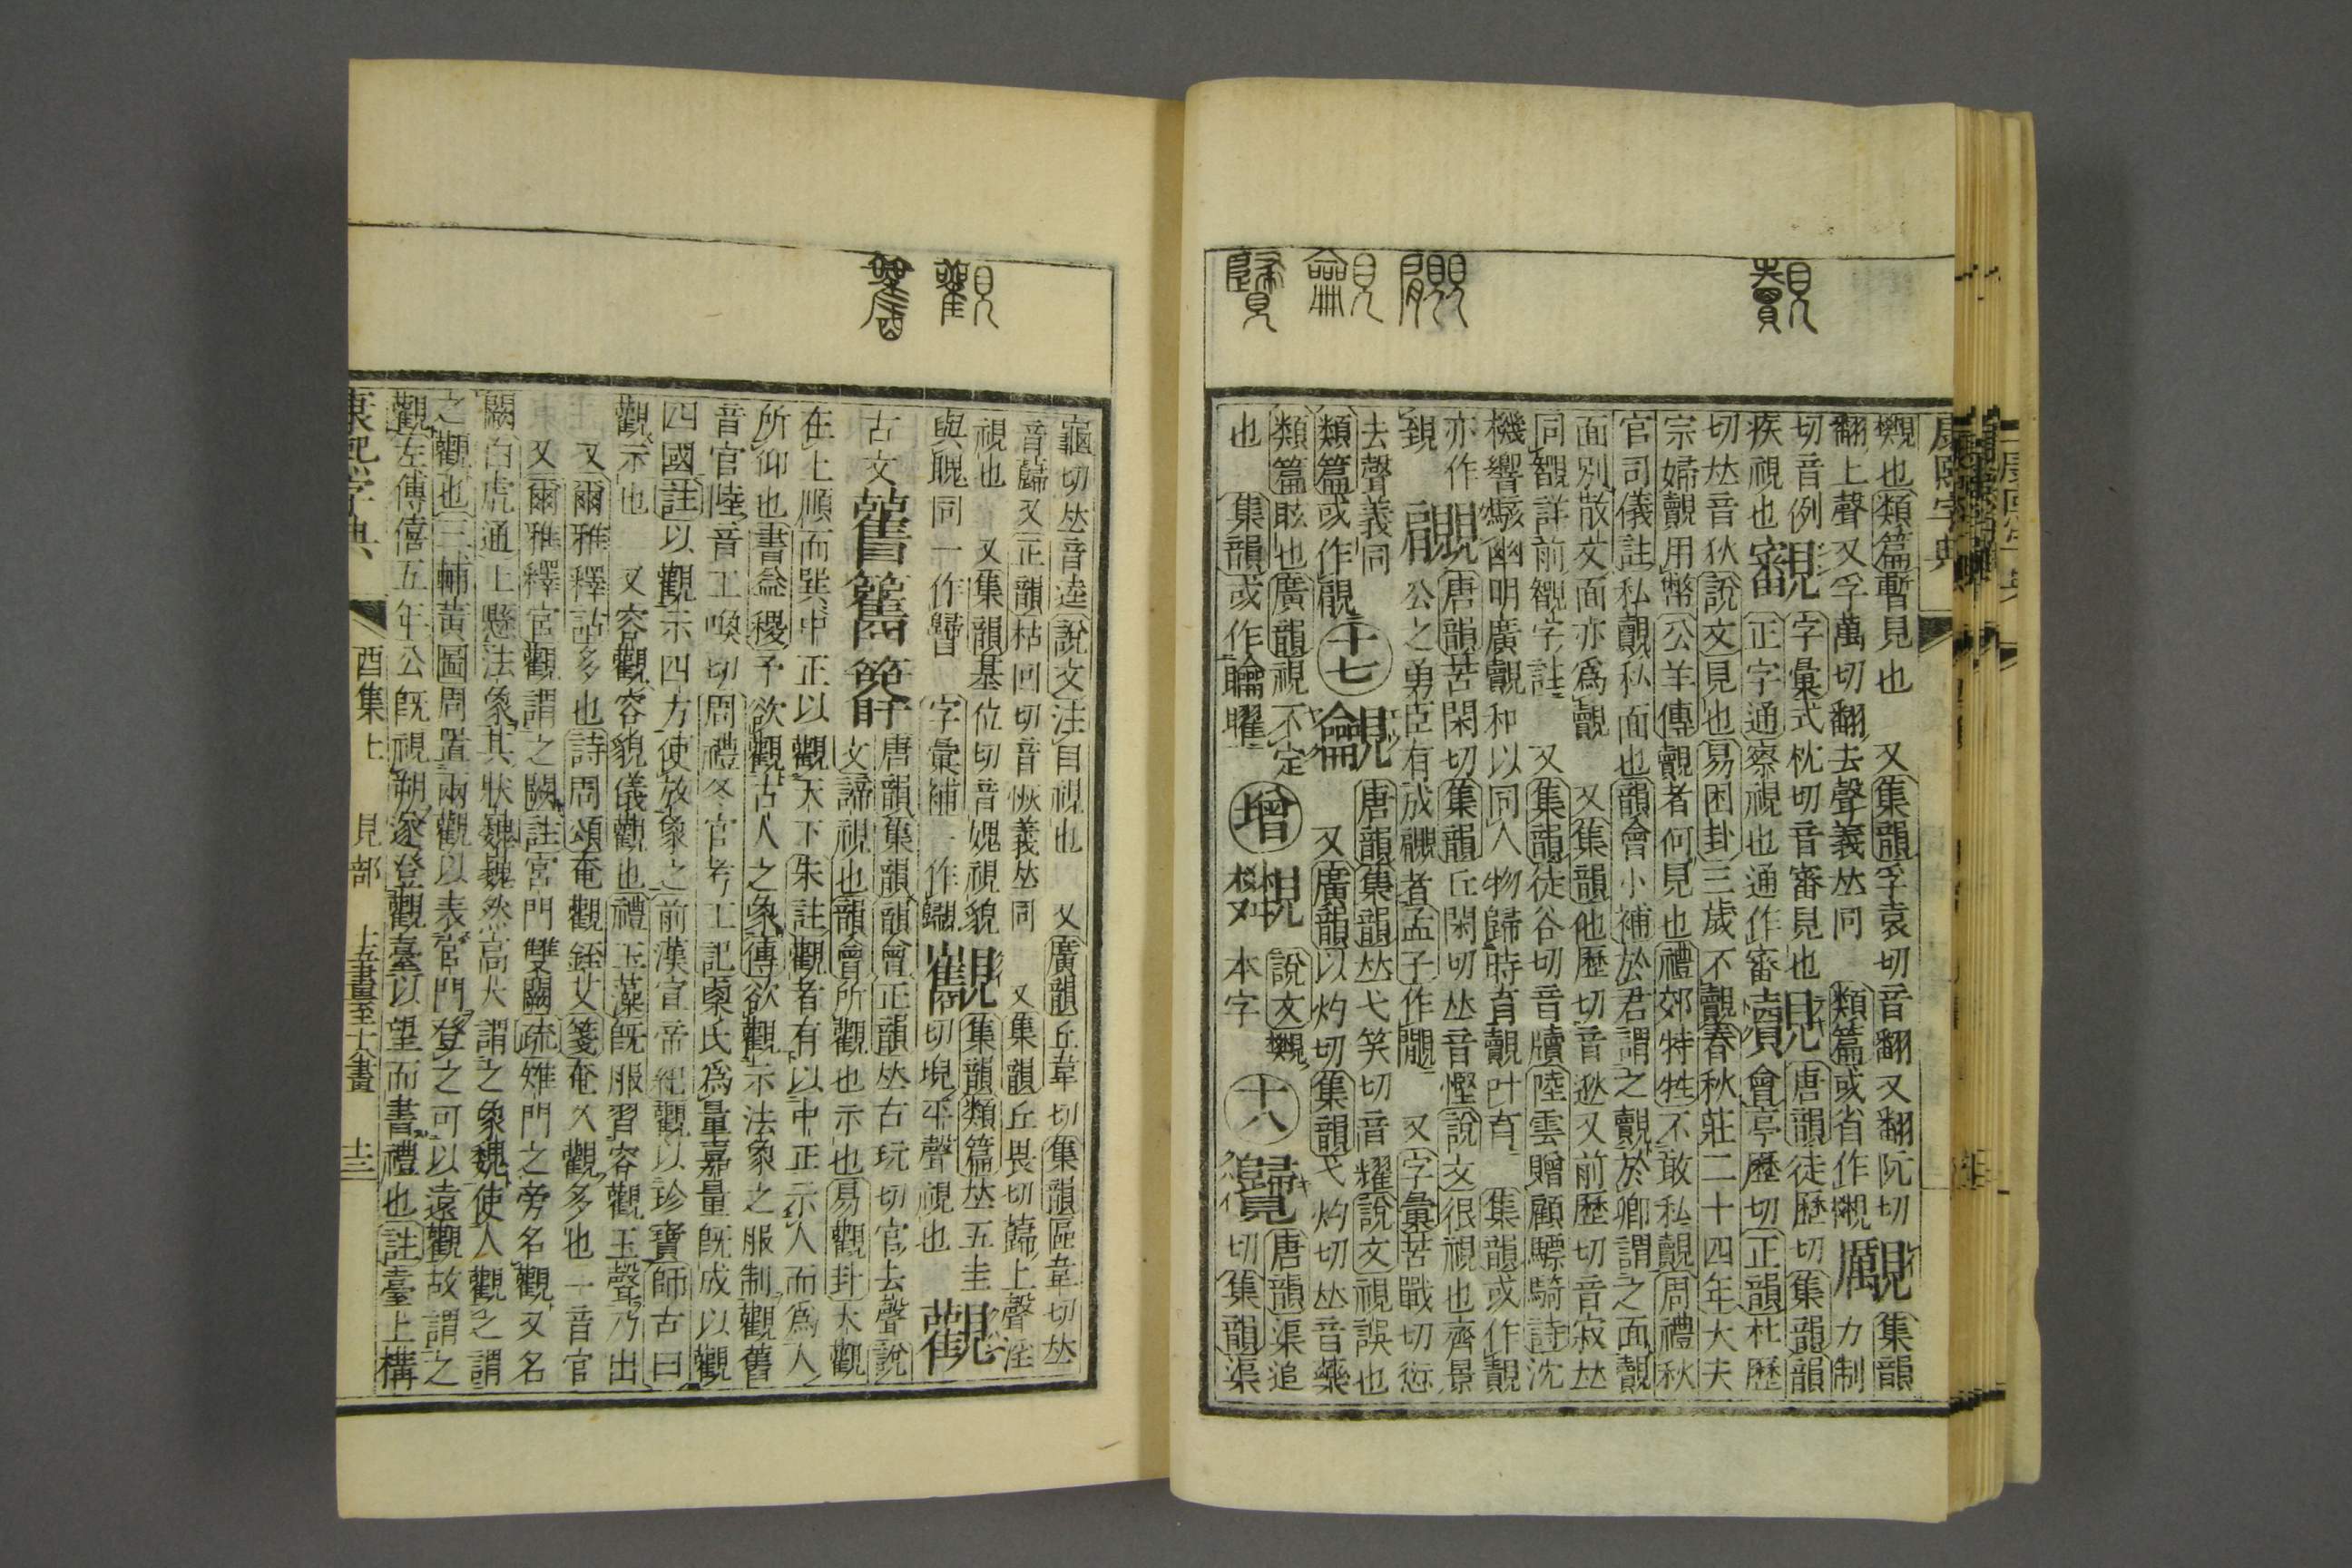 康熙字典
覹也類篇暫見也　又集韻孚袁切音翻又翻阮切
翻上聲又孚萬切翻去聲義𠀤同　類篇或省作覹　𧢝　集韻力制
切音例　字彙式枕切音審見也　覿　唐韻徒歷切集韻韻
疾視也　正字通察視也通作審　會亭歷切正韻杜歷
切𠀤音狄說文見也易困卦三歲不覿春秋莊二十四年大夫
宗婦覿用幣公羊傳覿者何見也禮郊特牲不敢私覿周禮秋
官司儀註私覿私面也韻會小補於君謂之覿於卿謂之面覿
面別散文面亦爲覿　又集韻他歷切音逖又前歷切音寂𠀤
同覩詳前覩字註　又集韻徒谷切音牘陸雲贈顧驃騎詩沈
機響駭幽明廣覿和以同人物歸時育覿叶育　集韻或作覿
亦作　覸　唐韻苦閑切集韻丘閑切𠀤音慳說文很視也齊景
公之勇臣有成覸者孟子作瞷　又字彙苦戰切愆
去聲義同　唐韻集韻𠀤弋笑切音耀說文視誤也
類篇或作覞　十七　覦　又廣韻以灼切集韻弋灼切𠀤音藥
類篇眩也廣韻視不定　說文　唐韻渠追
也　集韻或作瞱曜　增　本字　十八　切集韻渠
龜切𠀤音逵說文注目視也　又廣韻丘韋切集韻區韋切𠀤
音蘬又正韻枯回切音恢義𠀤同　又集韻丘畏切蘬上聲淫
視也　又集韻基位切音媿視貌　集韻類篇𠀤五圭
與聭同一作　字彙補一作　切堄平聲視也　觀
古文　唐韻集韻韻會正韻𠀤古玩切官去聲說
文諦視也韻會所觀也示也易觀卦大觀
在上順而巽中正以觀天下朱註觀者有以中正示人而爲人
所仰也書益稷予欲觀古人之象傳欲觀示法象之服制觀舊
音官陸音工喚切周禮冬官考工記㮚氏爲量嘉量旣成以觀
四國註以觀示四方使放象之前漢宣帝紀觀以珍寶師古曰
觀示也　又容觀容貌儀觀也禮玉藻旣服習容觀玉聲乃出
又爾雅釋詁多也詩周頌奄觀銍艾箋奄久觀多也一音官
又爾雅釋宮觀謂之闕註宮門雙闕疏雉門之旁名觀又名
闕白虎通上懸法象其狀巍巍然高大謂之象魏使人觀之謂
之觀也三輔黃圖周置兩觀以表宮門登之可以遠觀故謂之
觀左傳僖五年公旣視朔遂登觀臺以望而書禮也註臺上構
康熙字典　酉集上　見部　十五畫至十八畫　十三